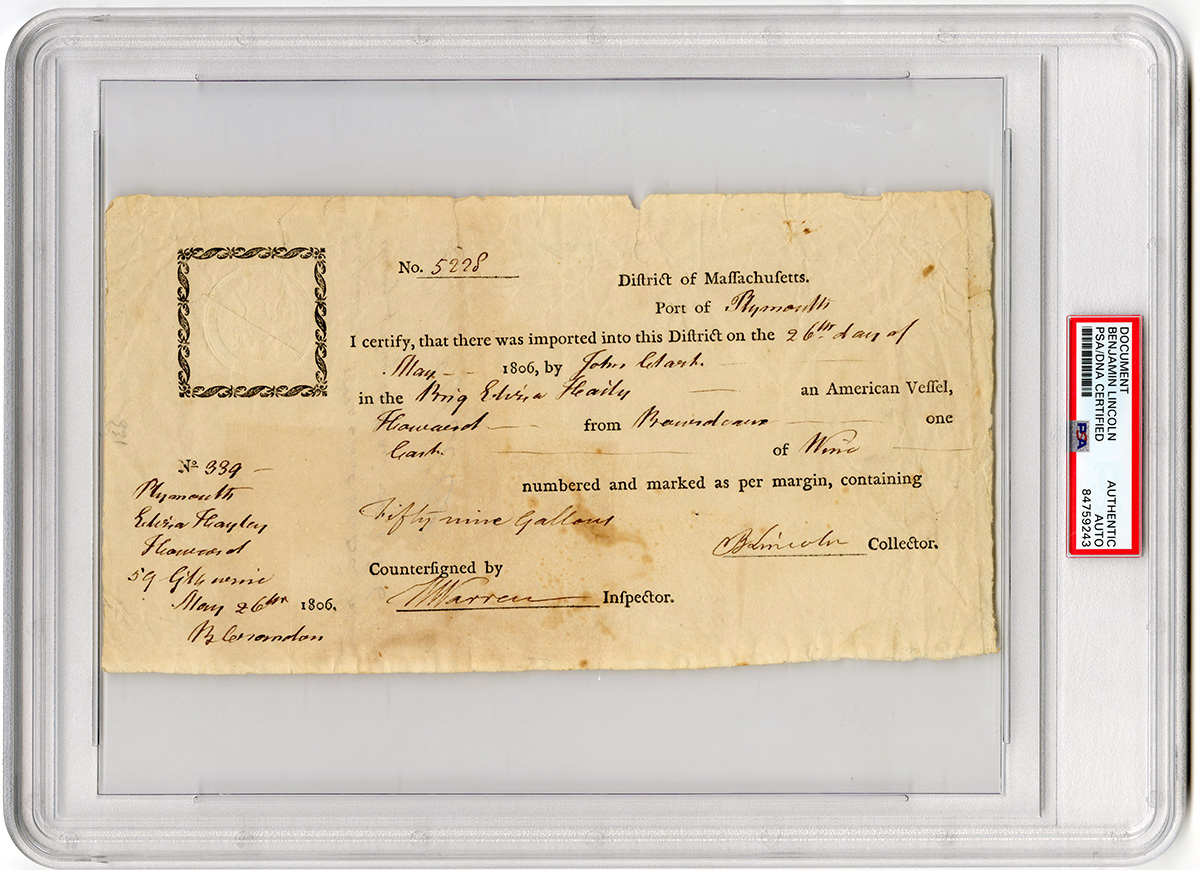 No. 5228
Diſtrict of Maſſachuſetts.
Port of Plymouth
I certify, that there was imported into this Diſtrict on the 26th day of
May 1806, by John Clark
in the Brig Eliza Haily an American Veſſel,
Howard from Bourdeaux one
Cask of Wine
numbered and marked as per margin, containing
Fifty nine Gallons
BLincoln Collector.
Counterſigned by
Warren Inſpector.
No 339
Plymouth
Eliza Hayley
Howard
59 Gls wine
May 26th 1806.
DOCUMENT
BENJAMIN LINCOLN
PSA/DNA CERTIFIED
PSA
AUTHENTIC
AUTO
84759243